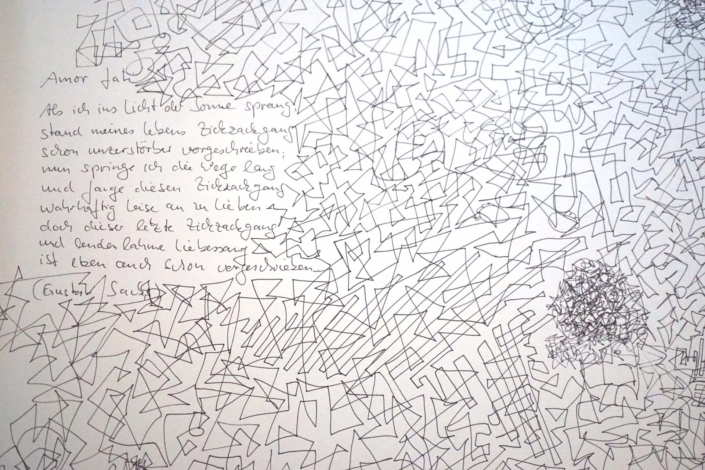 Amor fati
Als ich ins Licht der Sonne sprang
stand meines Lebens Zickzackgang
schon unzerstörbar vorgeschrieben;
nun springe ich die Wege lang
und fange diesen Zickzackgang
wahrhaftig leise an zu lieben
doch dieser letzte Zickzackgang
und lendenlahme Liebessang
ist eben auch schon vorgeschrieben